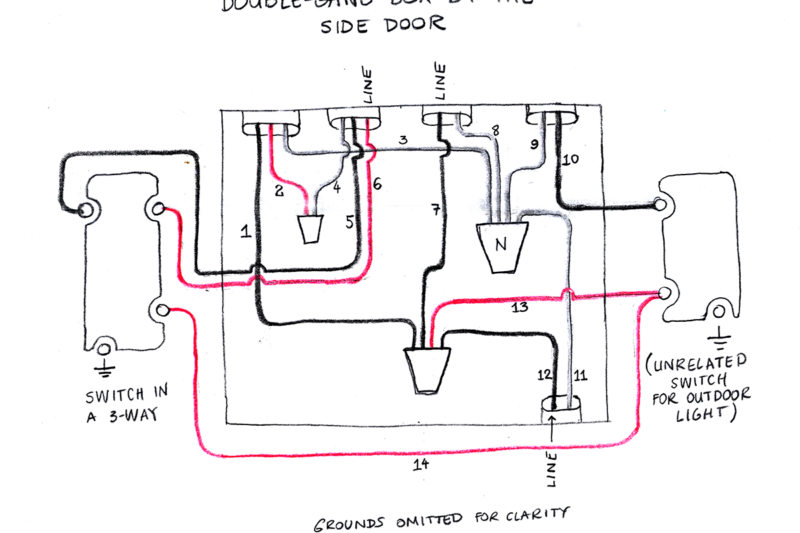 SIDE DOOR
LINE
LINE
1
2
3
4
5
6
7
8
9
10
N
13
12
11
LINE
14
SWITCH IN
A 3-WAY
(UNRELATED
SWITCH
FOR OUTDOOR
LIGHT)
GROUNDS OMITTED FOR CLARITY